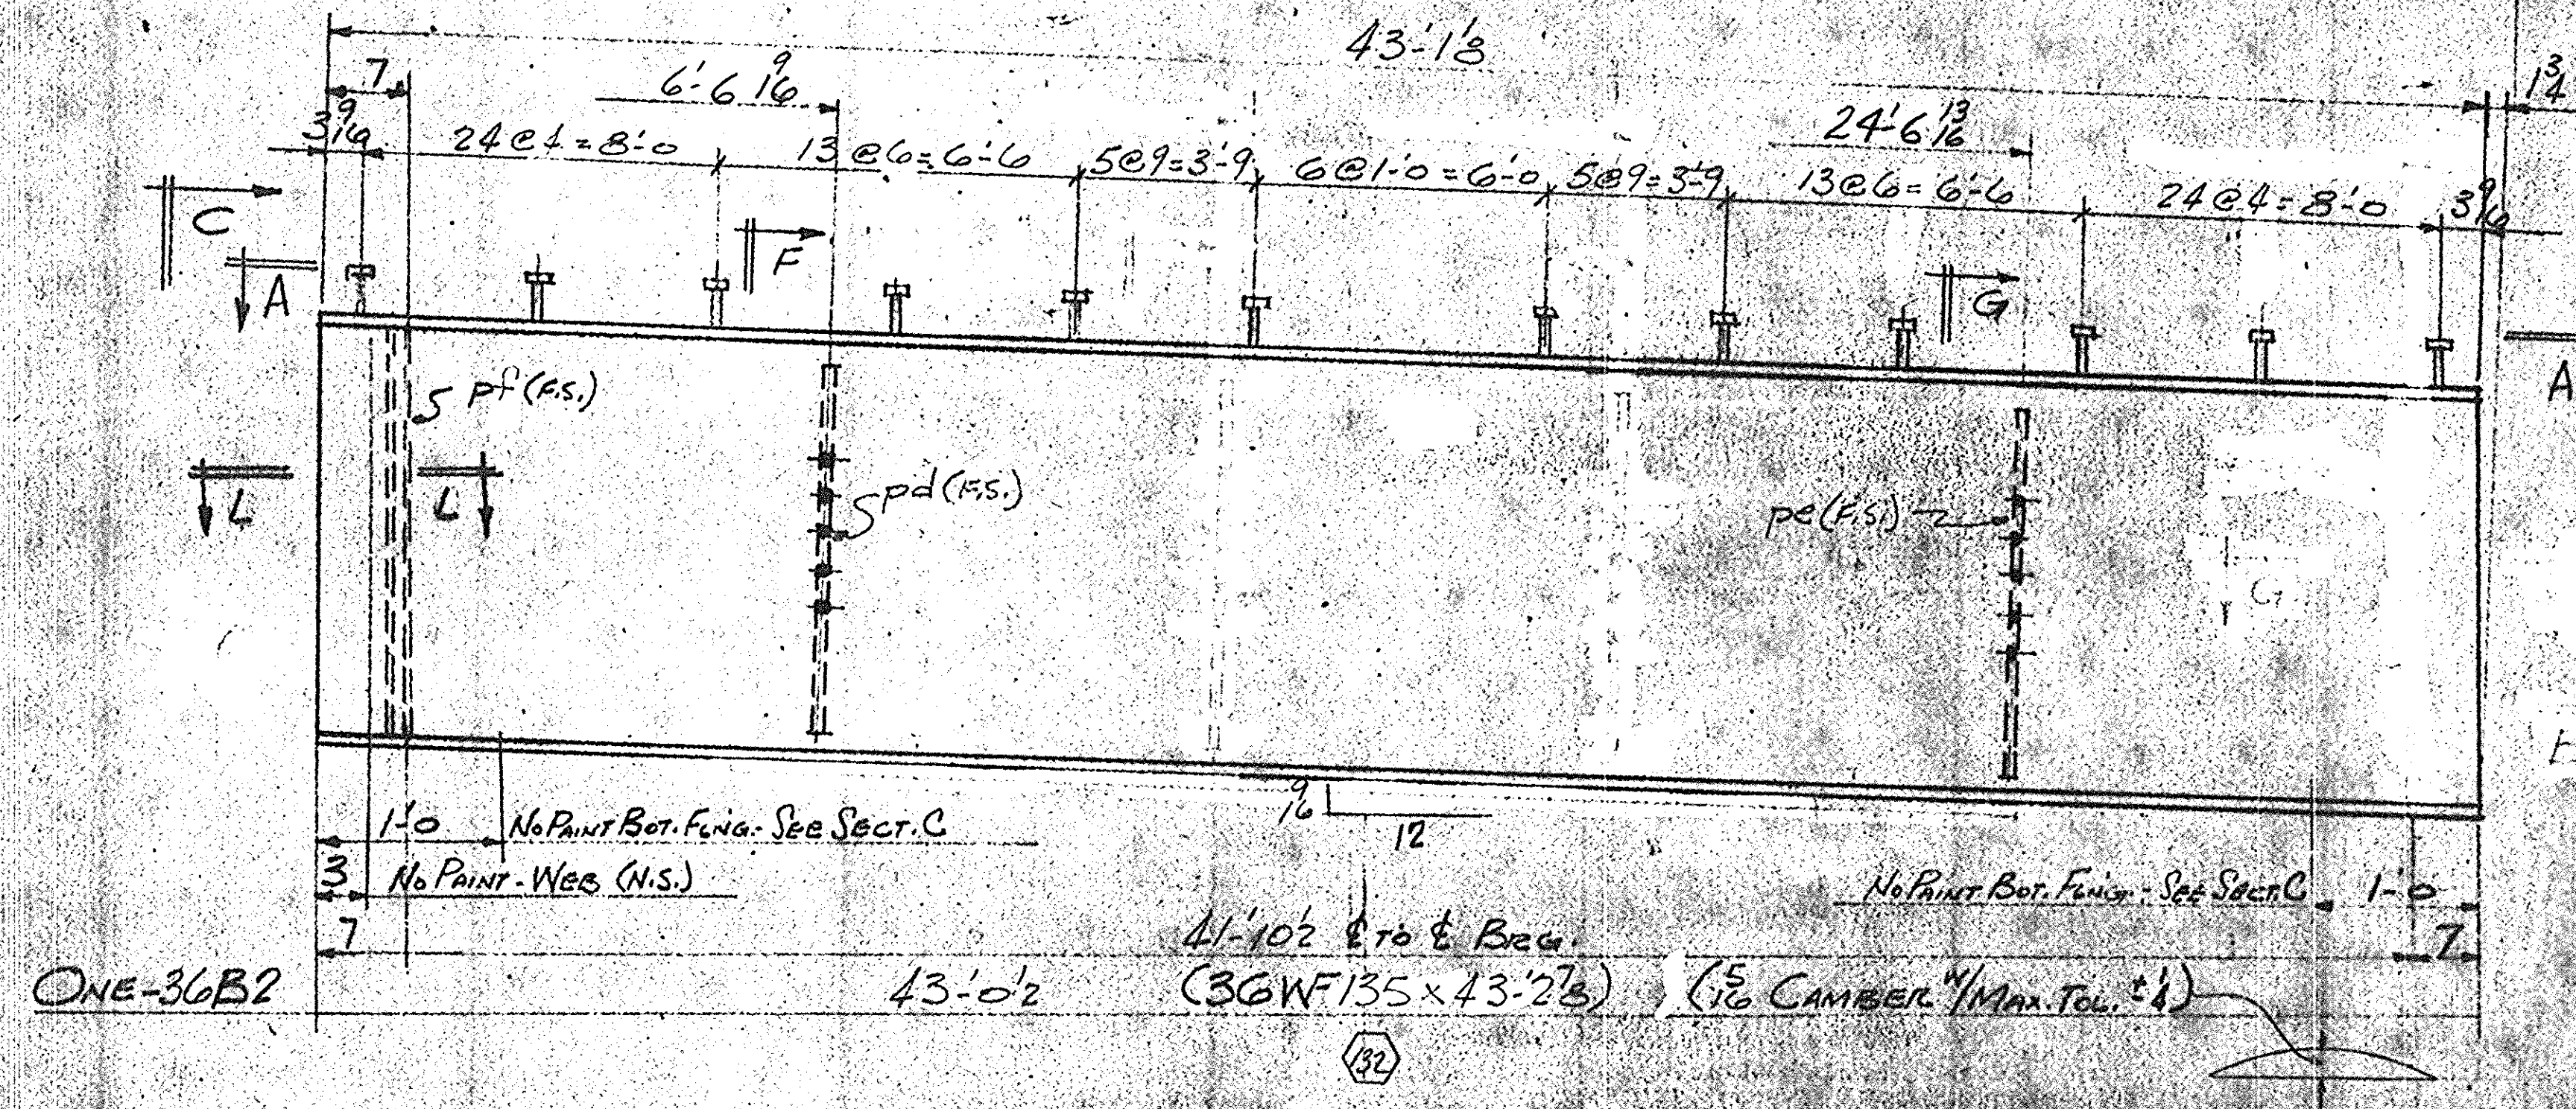 43'-1 1/8
1 3/4
7
6'-6 9/16
24'-6 13/16
3 9/16
24@4=8'-0
13@6=6'-6
5@9=3'-9
6@1'-0=6'-0
5@9=3'-9
13@6=6'-6
24@4=8'-0
3 9/16
C
F
G
A
A
pf (F.S.)
L
L
pd (F.S.)
pe (F.S.)
G
9/16
12
1'-0
NO PAINT BOT. FLNG.- SEE SECT. C
3
NO PAINT - WEB (N.S.)
NO PAINT BOT. FLNG.- SEE SECT. C
1'-0
7
41'-10 1/2 ℄ TO ℄ BRG.
7
ONE-36B2
43'-0 1/2
(36WF135 x 43'-2 7/8)
(5/16 CAMBER W/MAX. TOL. ± 1/4)
132